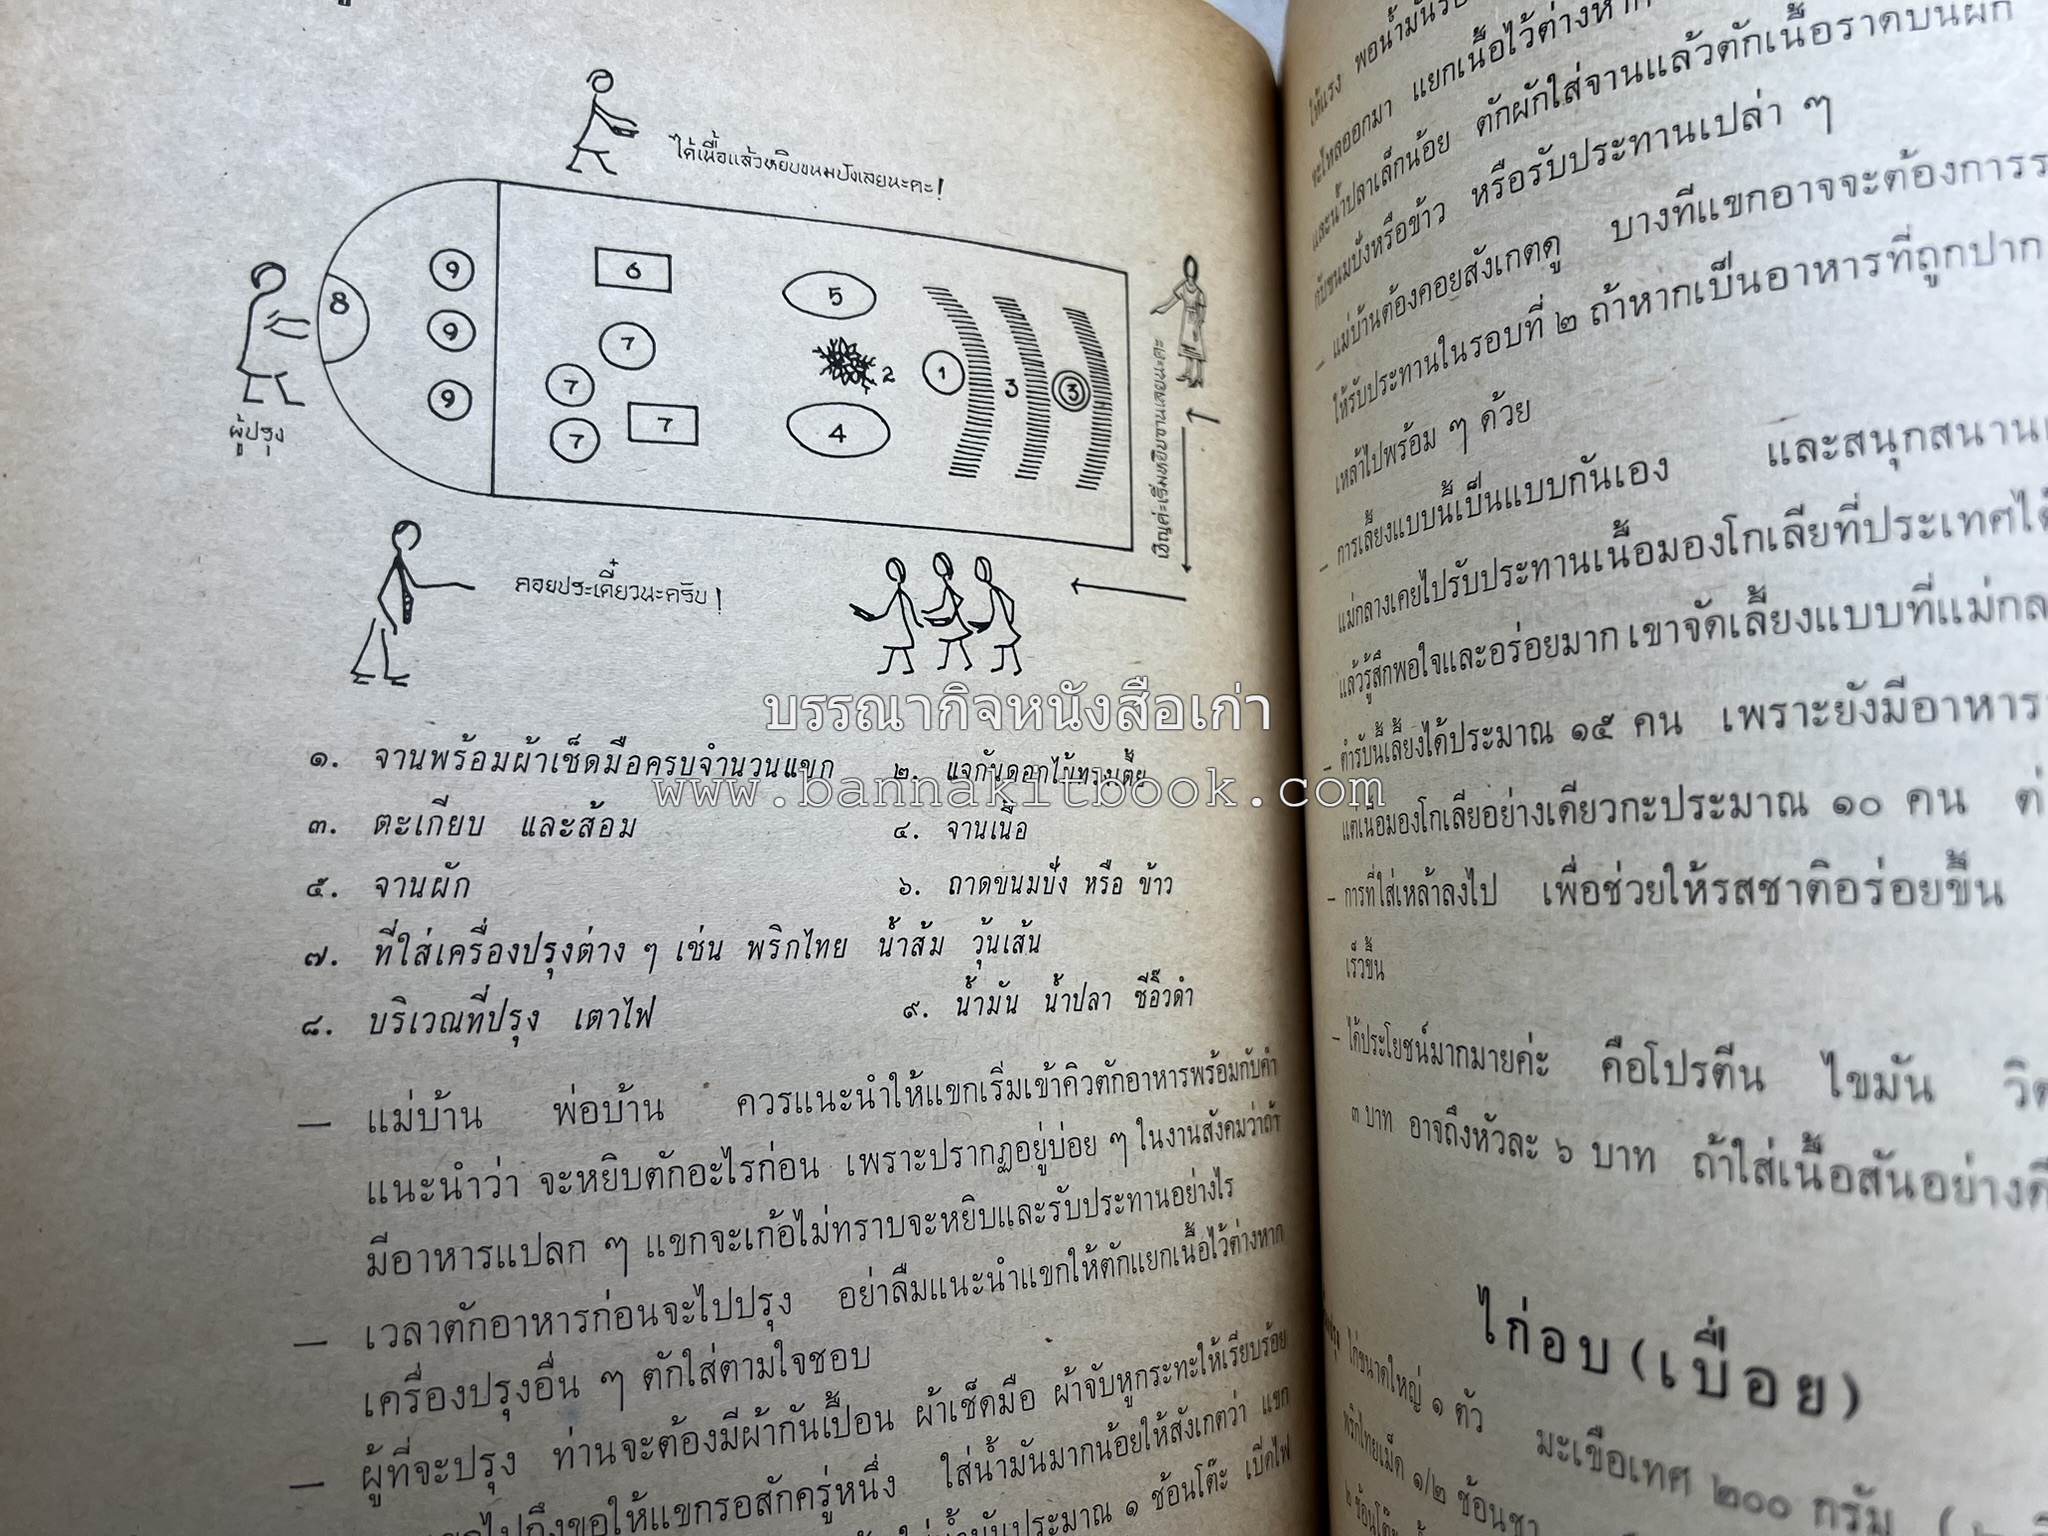 ได้เนื้อแล้วหยิบขนมปังเลยนะคะ!
9 6 5
8 9 7 2 1 3 3
9 7 7 7 4
ผู้ปรุง
เชิญค่ะเริ่มหยิบจานเลยนะคะ
คอยประเดี๋ยวนะครับ!
บรรณากิจหนังสือเก่า
www.bannakitbook.com
๑. จานพร้อมผ้าเช็ดมือครบจำนวนแขก ๒. แจกันดอกไม้ทรงเตี้ย
๓. ตะเกียบ และส้อม ๔. จานเนื้อ
๕. จานผัก ๖. ถาดขนมปัง หรือ ข้าว
๗. ที่ใส่เครื่องปรุงต่าง ๆ เช่น พริกไทย น้ำส้ม วุ้นเส้น
๘. บริเวณที่ปรุง เตาไฟ ๙. น้ำมัน น้ำปลา ซีอิ๊วดำ
— แม่บ้าน พ่อบ้าน ควรแนะนำให้แขกเริ่มเข้าคิวตักอาหารพร้อมกับคำ
แนะนำว่า จะหยิบตักอะไรก่อน เพราะปรากฏอยู่บ่อย ๆ ในงานสังคมว่าถ้า
มีอาหารแปลก ๆ แขกจะเก้อไม่ทราบจะหยิบและรับประทานอย่างไร
— เวลาตักอาหารก่อนจะไปปรุง อย่าลืมแนะนำแขกให้ตักแยกเนื้อไว้ต่างหาก
เครื่องปรุงอื่น ๆ ตักใส่ตามใจชอบ
— ผู้ที่จะปรุง ท่านจะต้องมีผ้ากันเปื้อน ผ้าเช็ดมือ ผ้าจับหูกระทะให้เรียบร้อย
ไปถึงขอให้แขกรอสักครู่หนึ่ง ใส่น้ำมันมากน้อยให้สังเกตว่า แขก
น้ำมันประมาณ ๑ ช้อนโต๊ะ เปิดไฟ
ให้แรง พอน้ำมัน
จะไหลออกมา แยกเนื้อไว้ต่างหาก
และน้ำปลาเล็กน้อย ตักผักใส่จานแล้วตักเนื้อราดบนผัก
กับขนมปังหรือข้าว หรือรับประทานเปล่า ๆ
— แม่บ้านต้องคอยสังเกตดู บางทีแขกอาจจะต้องการ
ให้รับประทานในรอบที่ ๒ ถ้าหากเป็นอาหารที่ถูกปาก
เหล้าไปพร้อม ๆ ด้วย
— การเลี้ยงแบบนี้เป็นแบบกันเอง และสนุกสนาน
แม่กลางเคยไปรับประทานเนื้อมองโกเลียที่ประเทศไต้
แล้วรู้สึกพอใจและอร่อยมาก เขาจัดเลี้ยงแบบที่แม่กลา
— ตำรับนี้เลี้ยงได้ประมาณ ๑๕ คน เพราะยังมีอาหาร
แต่เนื้อมองโกเลียอย่างเดียวกะประมาณ ๑๐ คน ต่
— การที่ใส่เหล้าลงไป เพื่อช่วยให้รสชาติอร่อยขึ้น
เร็วขึ้น
— ได้ประโยชน์มากมายค่ะ คือโปรตีน ไขมัน วิต
๓ บาท อาจถึงหัวละ ๖ บาท ถ้าใส่เนื้อสันอย่างดี
ไก่อบ(เปื่อย)
ไก่ขนาดใหญ่ ๑ ตัว มะเขือเทศ ๒๐๐ กรัม
พริกไทยเม็ด ๑/๒ ช้อนชา
๒ ช้อนโต๊ะ